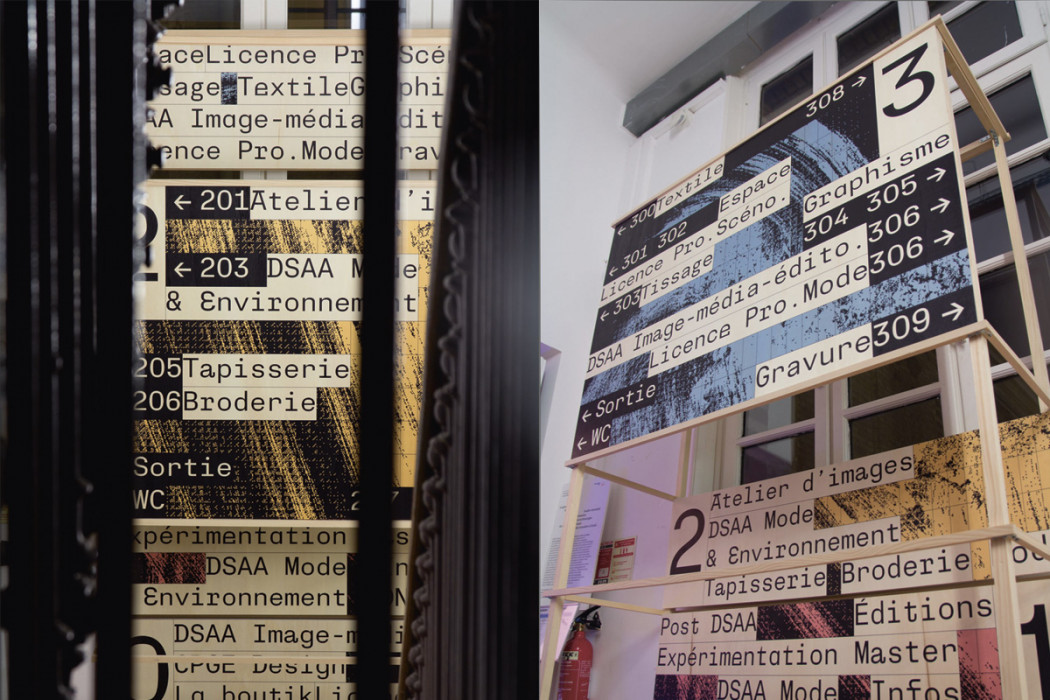 Licence Pr
Textile
AA Image-média
ence Pro.Mode
← 201Atelier
← 203 DSAA M de
& Environnement
205Tapisserie
206Broderie
Sortie
WC
xpérimentation
DSAA Mode
Environnement
DSAA Image-m
CPGE Design
La boutik
308 → 3
← 300Textile
Espace
← 301 302 Graphisme
Licence Pro.Scéno. 304 305 →
← 303Tissage 306 →
DSAA Image-média-édito.306 →
Licence Pro.Mode
Gravure309 →
← Sortie
← WC
2
Atelier d'images
DSAA Mode
& Environnement
Tapisserie Broderie
Post DSAA Éditions
Expérimentation Master
DSAA Mode Infos
1